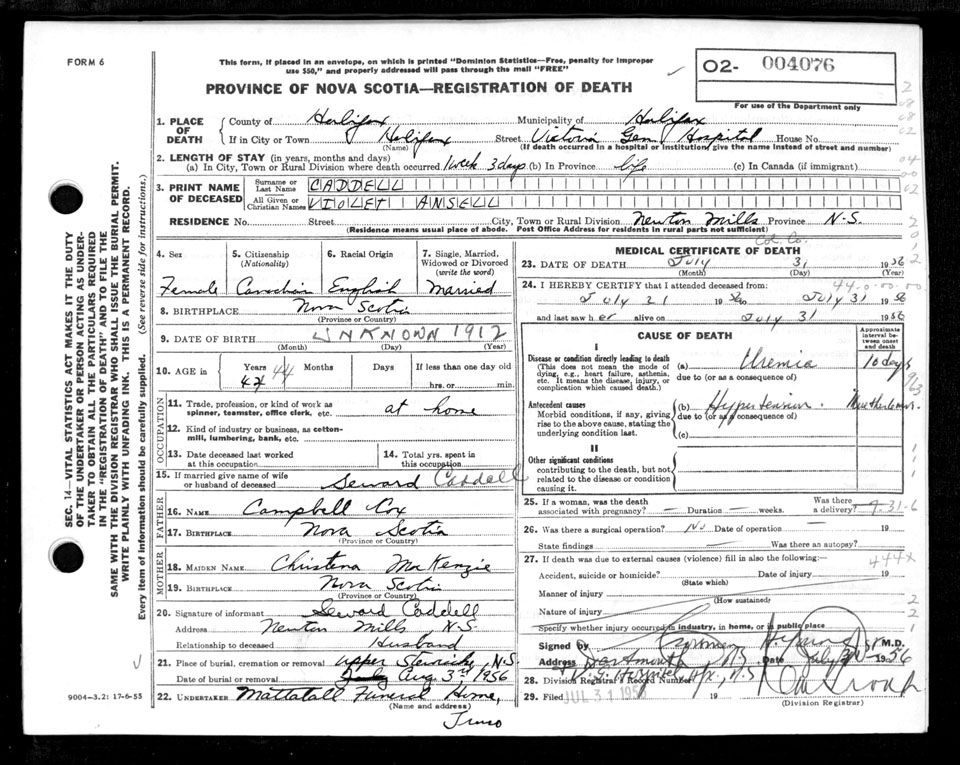 FORM 6
This form, if placed in an envelope, on which is printed "Dominion Statistics—Free, penalty for improper
use $50," and properly addressed will pass through the mail "FREE"
PROVINCE OF NOVA SCOTIA—REGISTRATION OF DEATH
02- 004076
For use of the Department only
1. PLACE OF DEATH
County of Halifax Municipality of Halifax
If in City or Town Halifax Street Victoria Gen Hospital House No.
(Name) (If death occurred in a hospital or institution, give the name instead of street and number)
2. LENGTH OF STAY (in years, months and days)
(a) In City, Town or Rural Division where death occurred 1 week 3 days (b) In Province life (c) In Canada (if immigrant)
3. PRINT NAME OF DECEASED
Surname or Last Name CADDELL
All Given or Christian Names VIOLET ANSELL
RESIDENCE No. Street City, Town or Rural Division Newton Mills Province N.S.
(Residence means usual place of abode. Post Office Address for residents in rural parts not sufficient)
Col. Co.
4. Sex
Female
5. Citizenship (Nationality)
Canadian
6. Racial Origin
English
7. Single, Married, Widowed or Divorced (write the word)
Married
8. BIRTHPLACE Nova Scotia
(Province or Country)
9. DATE OF BIRTH UNKNOWN 1912
(Month) (Day) (Year)
10. AGE in Years 44 Months Days If less than one day old
hrs. or min.
OCCUPATION
11. Trade, profession, or kind of work as spinner, teamster, office clerk, etc. at home
12. Kind of industry or business, as cotton-mill, lumbering, bank, etc.
13. Date deceased last worked at this occupation
14. Total yrs. spent in this occupation
15. If married give name of wife or husband of deceased Seward Caddell
FATHER
16. NAME Campbell Cox
17. BIRTHPLACE Nova Scotia
(Province or Country)
MOTHER
18. MAIDEN NAME Christena MacKenzie
19. BIRTHPLACE Nova Scotia
(Province or Country)
20. Signature of informant Seward Caddell
Address Newton Mills N.S.
Relationship to deceased Husband
21. Place of burial, cremation or removal Upper Stewiacke, N.S
Date of burial or removal July Aug 3rd 1956
22. UNDERTAKER Mattatall Funeral Home,
(Name and address)
Truro
9004-3.2: 17-6-55
MEDICAL CERTIFICATE OF DEATH
23. DATE OF DEATH July 31 1956
(Month) (Day) (Year)
24. I HEREBY CERTIFY that I attended deceased from:
July 21 1956 to July 31 1956
and last saw her alive on July 31 1956
CAUSE OF DEATH
Approximate interval between onset and death
I
Disease or condition directly leading to death
(This does not mean the mode of dying, e.g., heart failure, asthenia, etc. It means the disease, injury, or complication which caused death.)
(a) Uremia 10 days
due to (or as a consequence of)
Antecedent causes
Morbid conditions, if any, giving rise to the above cause, stating the underlying condition last.
(b) Hypertension
due to (or as a consequence of)
(c)
II
Other significant conditions
contributing to the death, but not related to the disease or condition causing it.
25. If a woman, was the death associated with pregnancy? — Duration — weeks. Was there a delivery?
7-31-6
26. Was there a surgical operation? No Date of operation — 19
State findings Was there an autopsy?
27. If death was due to external causes (violence) fill in also the following:
444X
Accident, suicide or homicide? Date of injury 19
(State which)
Manner of injury
(How sustained)
Nature of injury
Specify whether injury occurred in industry, in home, or in public place
Signed by M.D.
Address Dartmouth Date July 31 1956
28. Division Registrar's Record Number
29. Filed JUL 31 195 19
(Division Registrar)
SEC. 14—VITAL STATISTICS ACT MAKES IT THE DUTY
OF THE UNDERTAKER OR PERSON ACTING AS UNDER-
TAKER TO OBTAIN ALL THE PARTICULARS REQUIRED
IN THE "REGISTRATION OF DEATH" AND TO FILE THE
SAME WITH THE DIVISION REGISTRAR WHO SHALL ISSUE THE BURIAL PERMIT.
WRITE PLAINLY WITH UNFADING INK. THIS IS A PERMANENT RECORD.
Every item of information should be carefully supplied. (See reverse side for instructions.)